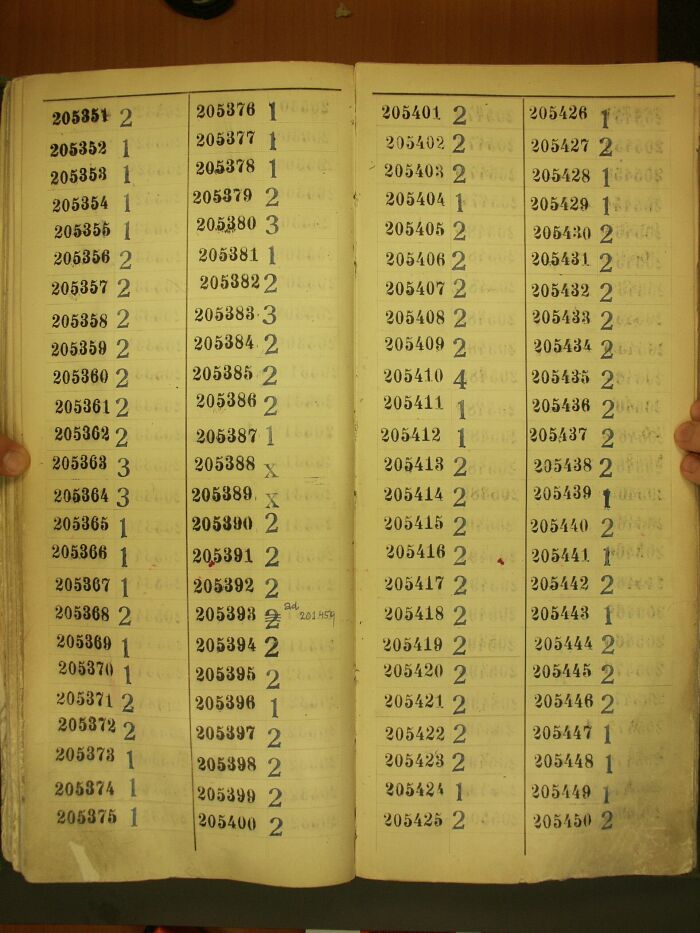 205351 2
205352 1
205353 1
205354 1
205355 1
205356 2
205357 2
205358 2
205359 2
205360 2
205361 2
205362 2
205363 3
205364 3
205365 1
205366 1
205367 1
205368 2
205369 1
205370 1
205371 2
205372 2
205373 1
205374 1
205375 1
205376 1
205377 1
205378 1
205379 2
205380 3
205381 1
205382 2
205383 3
205384 2
205385 2
205386 2
205387 1
205388 x
205389 x
205390 2
205391 2
205392 2
205393 2 ad 201459
205394 2
205395 2
205396 1
205397 2
205398 2
205399 2
205400 2
205401 2
205402 2
205403 2
205404 1
205405 2
205406 2
205407 2
205408 2
205409 2
205410 4
205411 1
205412 1
205413 2
205414 2
205415 2
205416 2
205417 2
205418 2
205419 2
205420 2
205421 2
205422 2
205423 2
205424 1
205425 2
205426 1
205427 2
205428 1
205429 1
205430 2
205431 2
205432 2
205433 2
205434 2
205435 2
205436 2
205437 2
205438 2
205439 1
205440 2
205441 1
205442 2
205443 1
205444 2
205445 2
205446 2
205447 1
205448 1
205449 1
205450 2